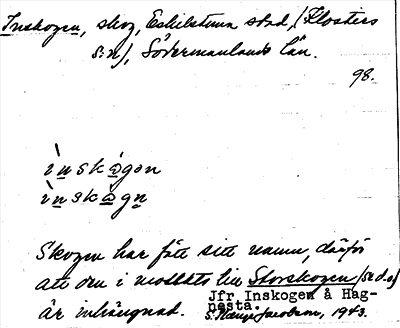 Inskogen, skog, Eskilstuna stad, (Klosters
s:n), Södermanlands län.
98.
ìnskògən
ìnskògn
Skogen har fått sitt namn, därför
att den i motsats till Storskogen (se d.o)
är inhängnad. Jfr Inskogen å Hag-
nesta.
S. Jacobson, 1943.